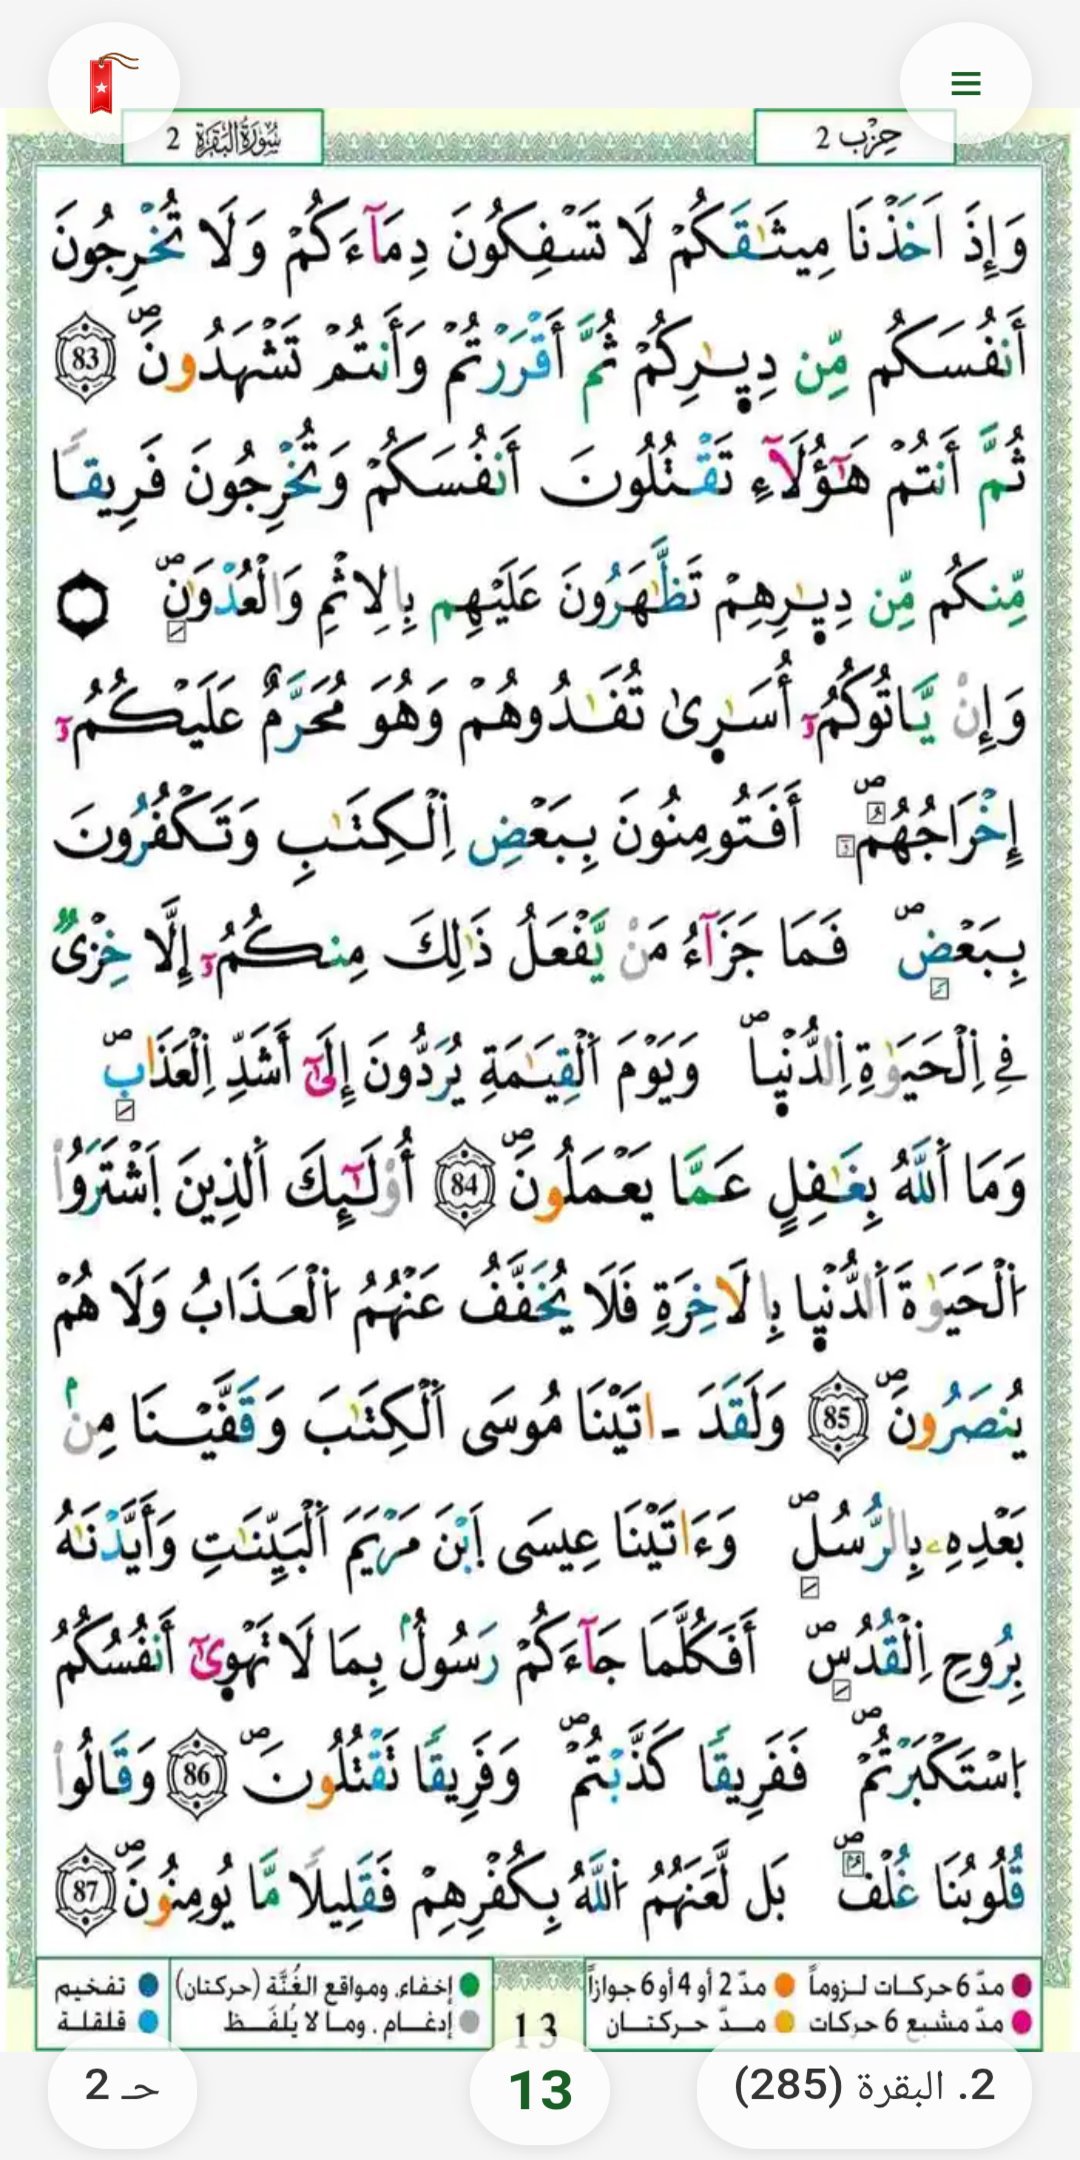 سُورَةُ البَقَرَةِ 2
حِزْب 2
وَإِذَ اَخَذْنَا مِيثَٰقَكُمْ لَا تَسْفِكُونَ دِمَآءَكُمْ وَلَا تُخْرِجُونَ
أَنفُسَكُم مِّن دِيٰ۪رِكُمْ ثُمَّ أَقْرَرْتُمْ وَأَنتُمْ تَشْهَدُونَۖ 83
ثُمَّ أَنتُمْ هَٰٓؤُلَآءِ تَقْتُلُونَ أَنفُسَكُمْ وَتُخْرِجُونَ فَرِيقاً
مِّنكُم مِّن دِيٰ۪رِهِمْ تَظَّٰهَرُونَ عَلَيْهِم بِالِاثْمِ وَالْعُدْوَٰنِۖ
وَإِنْ يَّاتُوكُمُۥٓ أُسَٰر۪ىٰ تُفَٰدُوهُمْ وَهُوَ مُحَرَّمٌ عَلَيْكُمُۥٓ
إِخْرَاجُهُمُۥٓۖ أَفَتُومِنُونَ بِبَعْضِ اِ۬لْكِتَٰبِ وَتَكْفُرُونَ
بِبَعْضٖۖ فَمَا جَزَآءُ مَنْ يَّفْعَلُ ذَٰلِكَ مِنكُمُۥٓ إِلَّا خِزْىٌ
فِے اِ۬لْحَيَوٰةِ اِ۬لدُّنْي۪اۖ وَيَوْمَ اَ۬لْقِيَٰمَةِ يُرَدُّونَ إِلَىٰٓ أَشَدِّ اِ۬لْعَذَابِۖ
وَمَا اَ۬للَّهُ بِغَٰفِلٍ عَمَّا يَعْمَلُونَۖ 84 أُوْلَٰٓئِكَ اَ۬لذِينَ اَ۪شْتَرَوُا
اُ۬لْحَيَوٰةَ اَ۬لدُّنْي۪ا بِالَاخِرَةِ فَلَا يُخَفَّفُ عَنْهُمُ اُ۬لْعَذَابُ وَلَا هُمْ
يُنصَرُونَۖ 85 وَلَقَدَ ـ اتَيْنَا مُوسَى اَ۬لْكِتَٰبَ وَقَفَّيْنَا مِنۢ
بَعْدِهِۦ بِالرُّسُلِۖ وَءَاتَيْنَا عِيسَى اَ۪بْنَ مَرْيَمَ اَ۬لْبَيِّنَٰتِ وَأَيَّدْنَٰهُ
بِرُوحِ اِ۬لْقُدُسِۖ أَفَكُلَّمَا جَآءَكُمْ رَسُولُۢ بِمَا لَا تَهْو۪ىٰٓ أَنفُسُكُمُ
اُ۪سْتَكْبَرْتُمْۖ فَفَرِيقاً كَذَّبْتُمْۖ وَفَرِيقاً تَقْتُلُونَۖ 86 وَقَالُوا
قُلُوبُنَا غُلْفٌۖ بَل لَّعَنَهُمُ اُ۬للَّهُ بِكُفْرِهِمْ فَقَلِيلًا مَّا يُومِنُونَۖ 87
مدّ 6 حركات لـزوماً مدّ 2 أو 4 أو 6 جوازاً إخفاء، ومواقع الغُنَّة (حركتان) تفخيم
مدّ مشبع 6 حركات مــدّ حــركتــان 13 إدغــام . ومـا لا يُلفَــظ قلقلـة
2. البقرة (285) 13 حـ 2